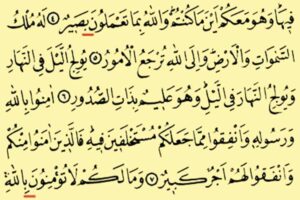 فِيهَا وَهُوَ مَعَكُمْ اَيْنَ مَا كُنْتُمْ وَاللّٰهُ بِمَا تَعْمَلُونَ بَصِيرٌ ﴿٤﴾ لَهُ مُلْكُ
السَّمٰوَاتِ وَالْاَرْضِ وَاِلَى اللّٰهِ تُرْجَعُ الْاُمُورُ ﴿٥﴾ يُولِجُ الَّيْلَ فِي النَّهَارِ
وَيُولِجُ النَّهَارَ فِي الَّيْلِ وَهُوَ عَلِيمٌ بِذَاتِ الصُّدُورِ ﴿٦﴾ اٰمِنُوا بِاللّٰهِ
وَرَسُولِهِ وَاَنْفِقُوا مِمَّا جَعَلَكُمْ مُسْتَخْلَفِينَ فِيهِ فَالَّذِينَ اٰمَنُوا مِنْكُمْ
وَاَنْفَقُوا لَهُمْ اَجْرٌ كَبِيرٌ ﴿٧﴾ وَمَا لَكُمْ لَا تُؤْمِنُونَ بِاللّٰهِ